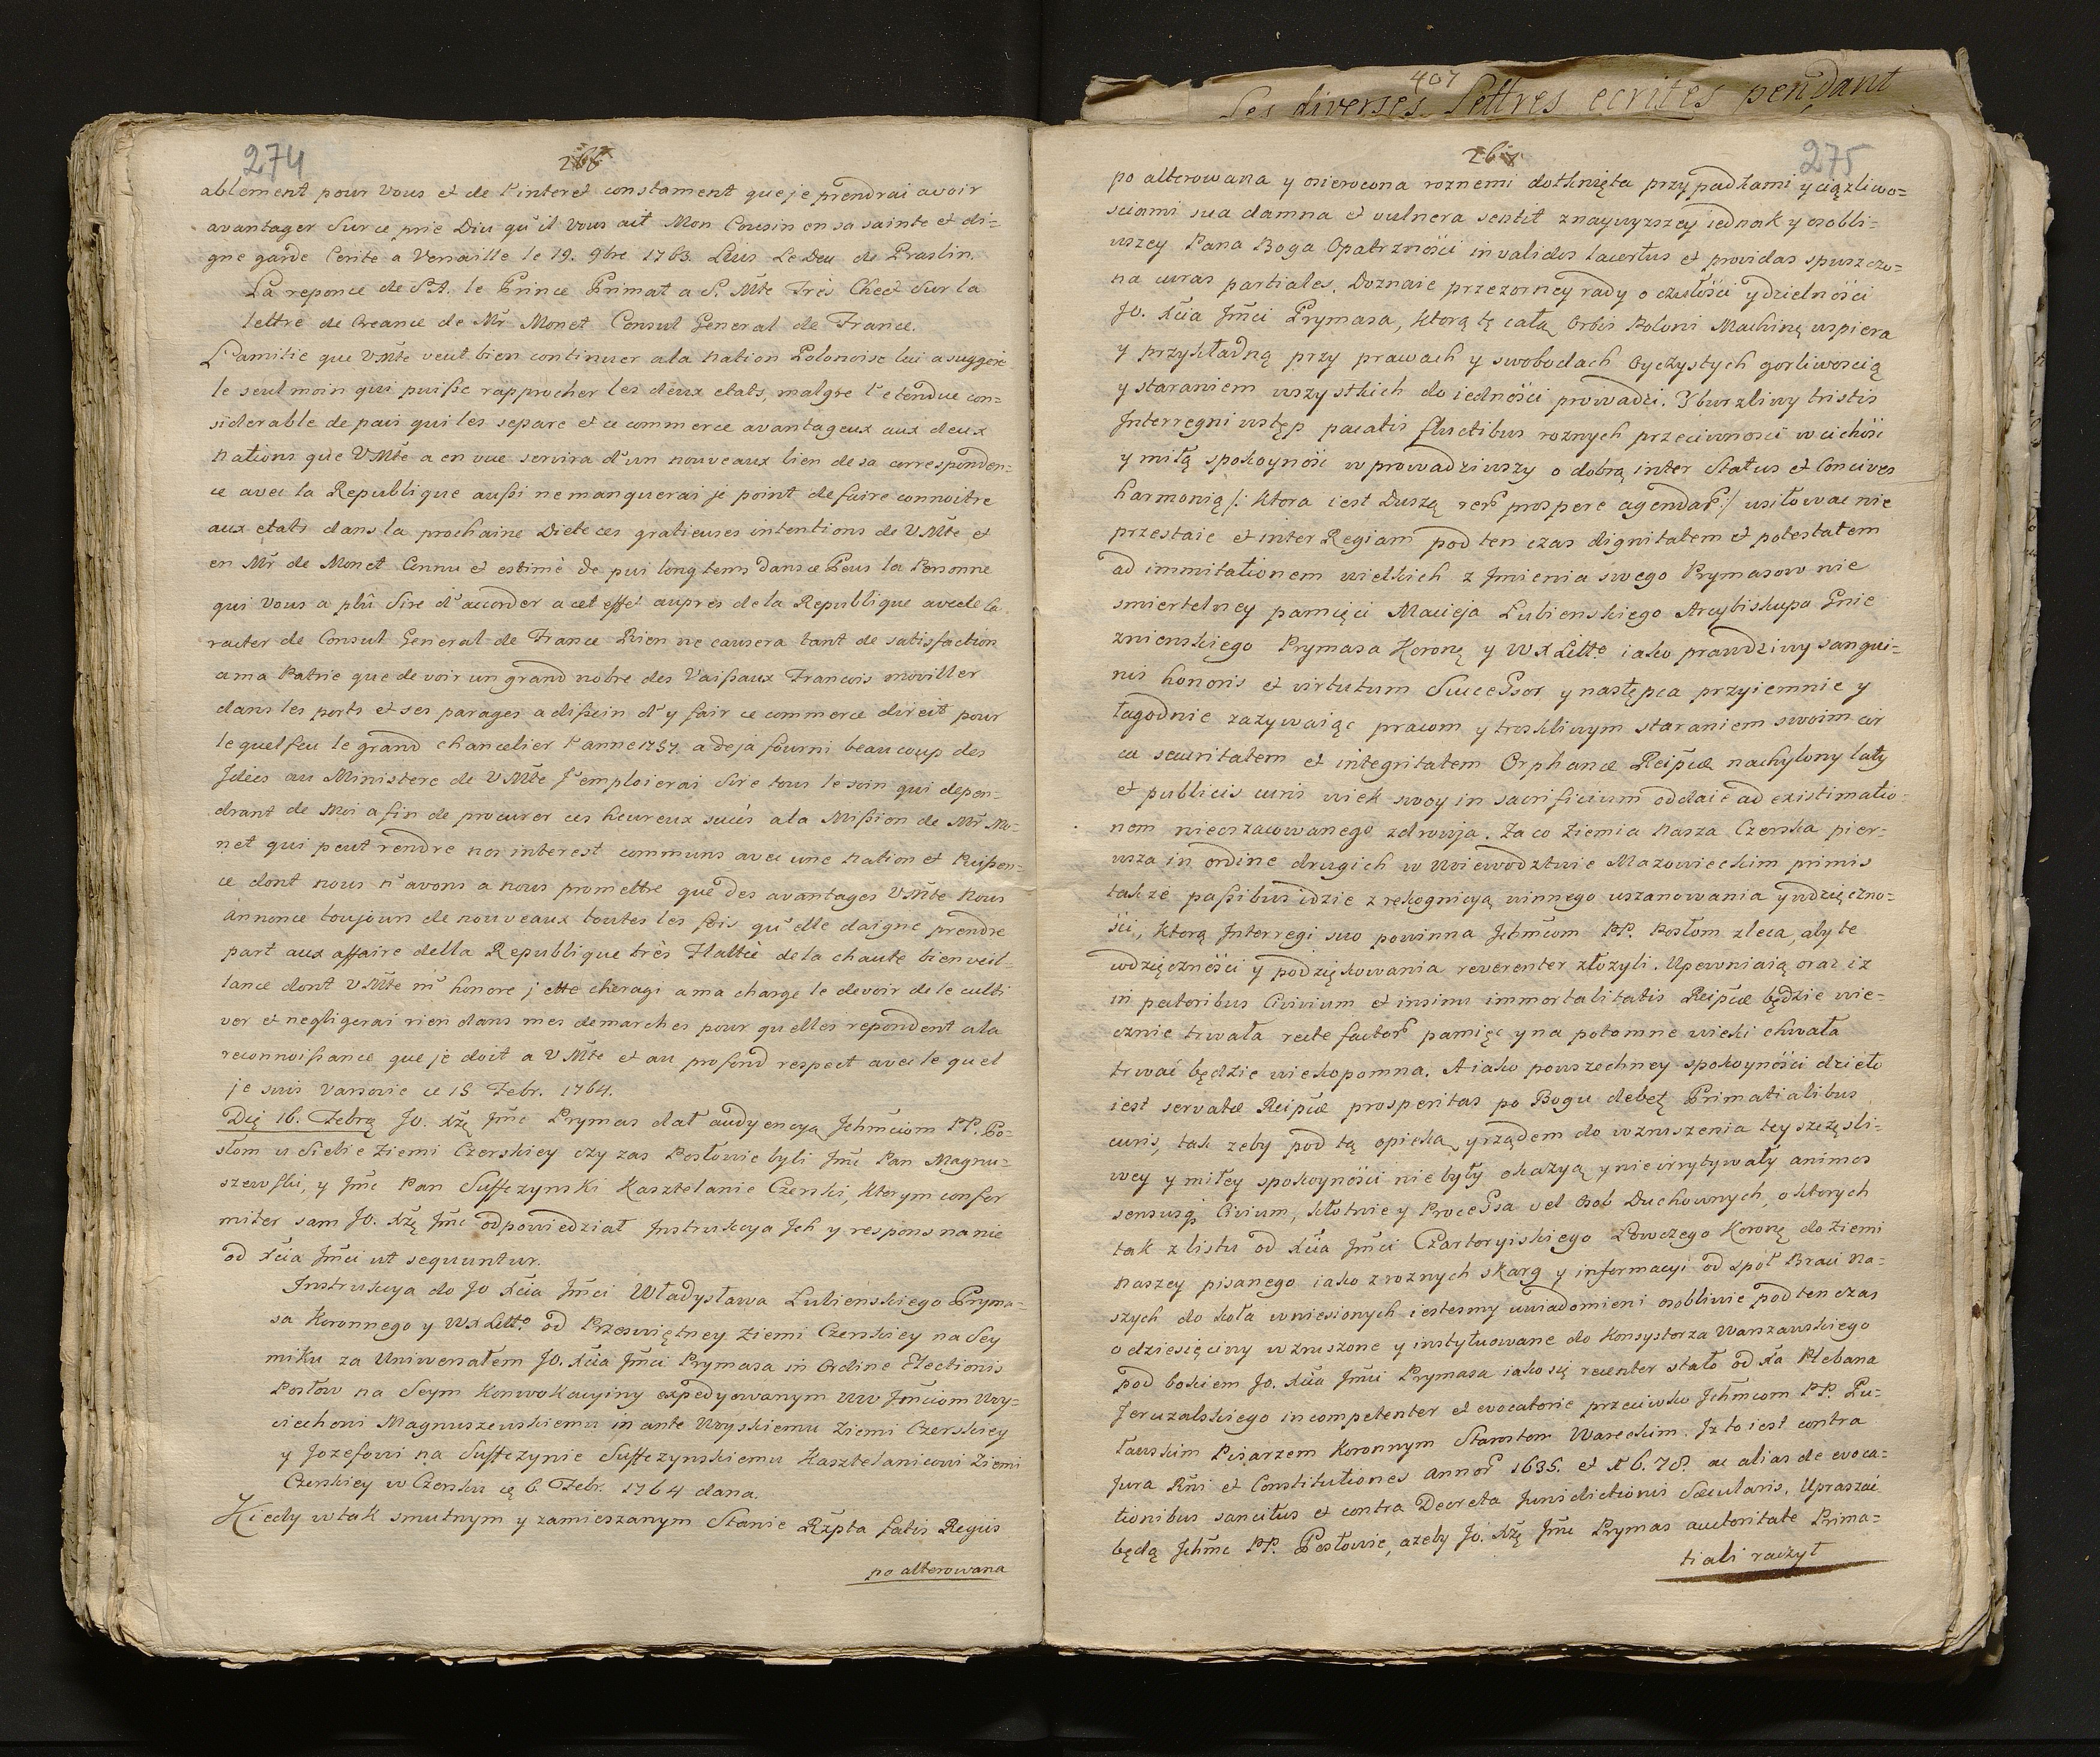 274
266
ablement pour Vous et de l'interet constament que je prendrai avoir
avantager Sur ce prie Diu qu'il Vous ait Mon Cousin en sa sainte et di=
gne garde Ecrite a Versaille le 19. 9bre 1763. Lüis Le Deu de Praslin.
La reponce de S.A. le Prince Primat a S. Mte Très Chret Sur la
lettre de Creance de Mr Monet Consul General de France.
L'amitie que VMte veut bien continuer a la Nation Polonoise lui a suggeré
le seul moin qui puisse rapprocher les deux etats, malgre l'etendue con=
siderable de pais qui les separe et ce commerce avantageux aux deux
Nations que VMte a en vue servira d'un nouveaux lien de sa corresponden=
ce avec la Republique aussi ne manquerai je point de faire connoitre
aux etats dans la prochaine Diete ces gratieuses intentions de VMte et
en Mr de Monet Connu et estimé de pui long tems dans ce Peus la Personne
qui Vous a plû Sire d'accorder a cet effet aupres de la Republique avec le Ca
racter de Consul General de France Rien ne causera tant de satisfaction
a ma Patrie que de voir un grand nobre des Vaissaux Francois moviller
dans les ports et ses parages a dissein d'y fair ce commerce direct pour
le quel feu le grand chancelier l'anne 1757. a deja fourni beaucoup des
Idées au Ministere de VMte J'emploierai Sire tous le soin qui depen=
drant de Moi a fin de procurer ces heureux succés a la Mission de Mr Mo=
net qui peut rendre nos interest communs avec une Nation et Puissen=
ce dont nous n'avons a nous promettre que des avantages VMte Nous
annonce toujours de nouveaux toutes les fois qu'elle daigne prendre
part aux affaire della Republique très Flatté de la chaute bienveil=
lance dont VMte m'honore j ette cheragi a ma charge le devoir de le culti
ver et negligerai rien dans mes demarches pour qu elles repondent a la
reconnoissance que je doit a VMte et au profond respect avec le quel
je suis Varsovie ce 15 Febr. 1764.
Die 16. Febrą Jo. Xżę Jmć Prymas dał audyencyą Ichmciom PP. Po=
słom u Siebie Ziemi Czerskiey czy zas Posłowie byli Jmć Pan Magnu=
szewski, y Jmć Pan Suffczynski Kasztelanic Czerski, ktorym confor
miter sam Jo. Xżę Jmć odpowiedział Instrukcya Ich y respons na nie
od Xcia Jmci ut sequuntur.
Instrukcya do Jo Xcia Jmci Władysława Lubienskiego Pryma=
sa Koronnego y WXLitto od Przeswiętney Ziemi Czerskiey na Sey
miku za Uniwersałem Jo. Xcia Jmci Prymasa in Ordine Electionis
Posłow na Seym Konwokacyiny expedyowanym WW Jmciom Woy=
ciechowi Magnuszewskiemu in ante Woyskiemu Ziemi Czerskiey
y Jozefowi na Suffczynie Suffczynskiemu Kasztelanicowi Ziemi
Czerskiey w Czersku ię 6 Febr. 1764 dana.
Kiedy wtak smutnym y zamieszanym Stanie Rzpta fatis Regiis
po alterowana
407
Les diverses Lettres ecrites pendant
267
275
po alterowana y osierocona roznemi dotknięta przypadkami y ciązliwo=
sciami sua damna et vulnera sentit znaywyzszey iednak y osobli=
wszey Pana Boga Opatrznosci invalidos lacertus et providas spuszczo=
na curas partiales. Doznaie przezorney rady o czułosci y dzielnosci
Jo. Xcia Jmci Prymasa, ktorą tę całą Orbis Poloni Machinę wspiera
y przykładną przy prawach y swobodach Oyczystych gorliwoscią
y staraniem wszystkich do iednosci prowadzi. Y burzliwy tristis
Interregni wstęp pacatis fluctibus roznych przeciwnosci w cichosc
y miłą spokoynosc w prowadziwszy o dobrą inter Status et Concives
harmonią /: ktora iest Duszą rer prospere agendar :/ usiłowac nie
przestaie et inter Regiam pod ten czas dignitatem et potestatem
ad immitationem wielkich z Imienia swego Prymasow nie
smiertelney pamięci Macieja Lubienskiego Arcybiskupa Gnie
znienskiego Prymasa Koronę y WXLitto iako prawdziwy sangui=
nis honoris et virtutum Successor y następca przyiemnie y
łagodnie zazywaiąc pracom y troskliwym staraniem swoim cir
ca securitatem et integritatem Orphanæ Reipcæ nachylony laty
et publicis curis wiek swoy in sacrificium oddaie ad existimatio=
nem nieoszacowanego zdrowja. Za co Ziemia Nasza Czerska pier=
wsza in ordine drugich w Woiewodztwie Mazowieckim primis
takze passibus idzie z rekognicyą winnego uszanowania y wdzięczno=
sci, ktorą Interregi suo powinna Ichmciom PP. Posłom zleca, aby te
wdzięcznosci y podziękowania reverenter złozyli. Upewniaią oraz iz
in pectoribus Civium et in sinu immortalitatis Reipcæ będzie wie=
cznie trwała recte factor pamięc y na potomne wieki chwała
trwać będzie wiekopomna. A iako powszechney spokoynosci dzieło
iest servatæ Reipcæ prosperitas po Bogu debetę Primatialibus
curis, tak zeby pod tą opieką y rządem do wzruszenia tey szczęsli=
wey y miłey spokoynosci nie były okazyą y nie irrytywały animos
sensusq Civium, kłotnie y Processa vel Osob Duchownych, o ktorych
tak z listu od Xcia Jmci Czartoryiskiego Łowczego Koronę do Ziemi
Naszey pisanego iako z roznych skarg y informacyi od społ Braci Na=
szych do koła wniesionych iestesmy uwiadomieni osobliwie pod ten czas
o dziesięciny wzruszone y instytuowane do Konsystorza Warszawskiego
pod bokiem Jo. Xcia Jmci Prymasa iako się recenter stało od Xa Plebana
Jeruzalskiego incompetenter et evocatorie przeciwko Ichmciom PP. Pu=
ławskim Pisarzem Koronnym Starostom Wareckim. Iz to iest contra
Jura Rni et Constitutiones Annor 1635. et X 6. 78. ac alias de evoca=
tionibus sancitus et contra Decreta Jurisdictionis Sæcularis. Upraszać
będą Ichmć PP. Posłowie, azeby Jo. Xżę Jmć Prymas auctoritate Prima=
tiali raczył